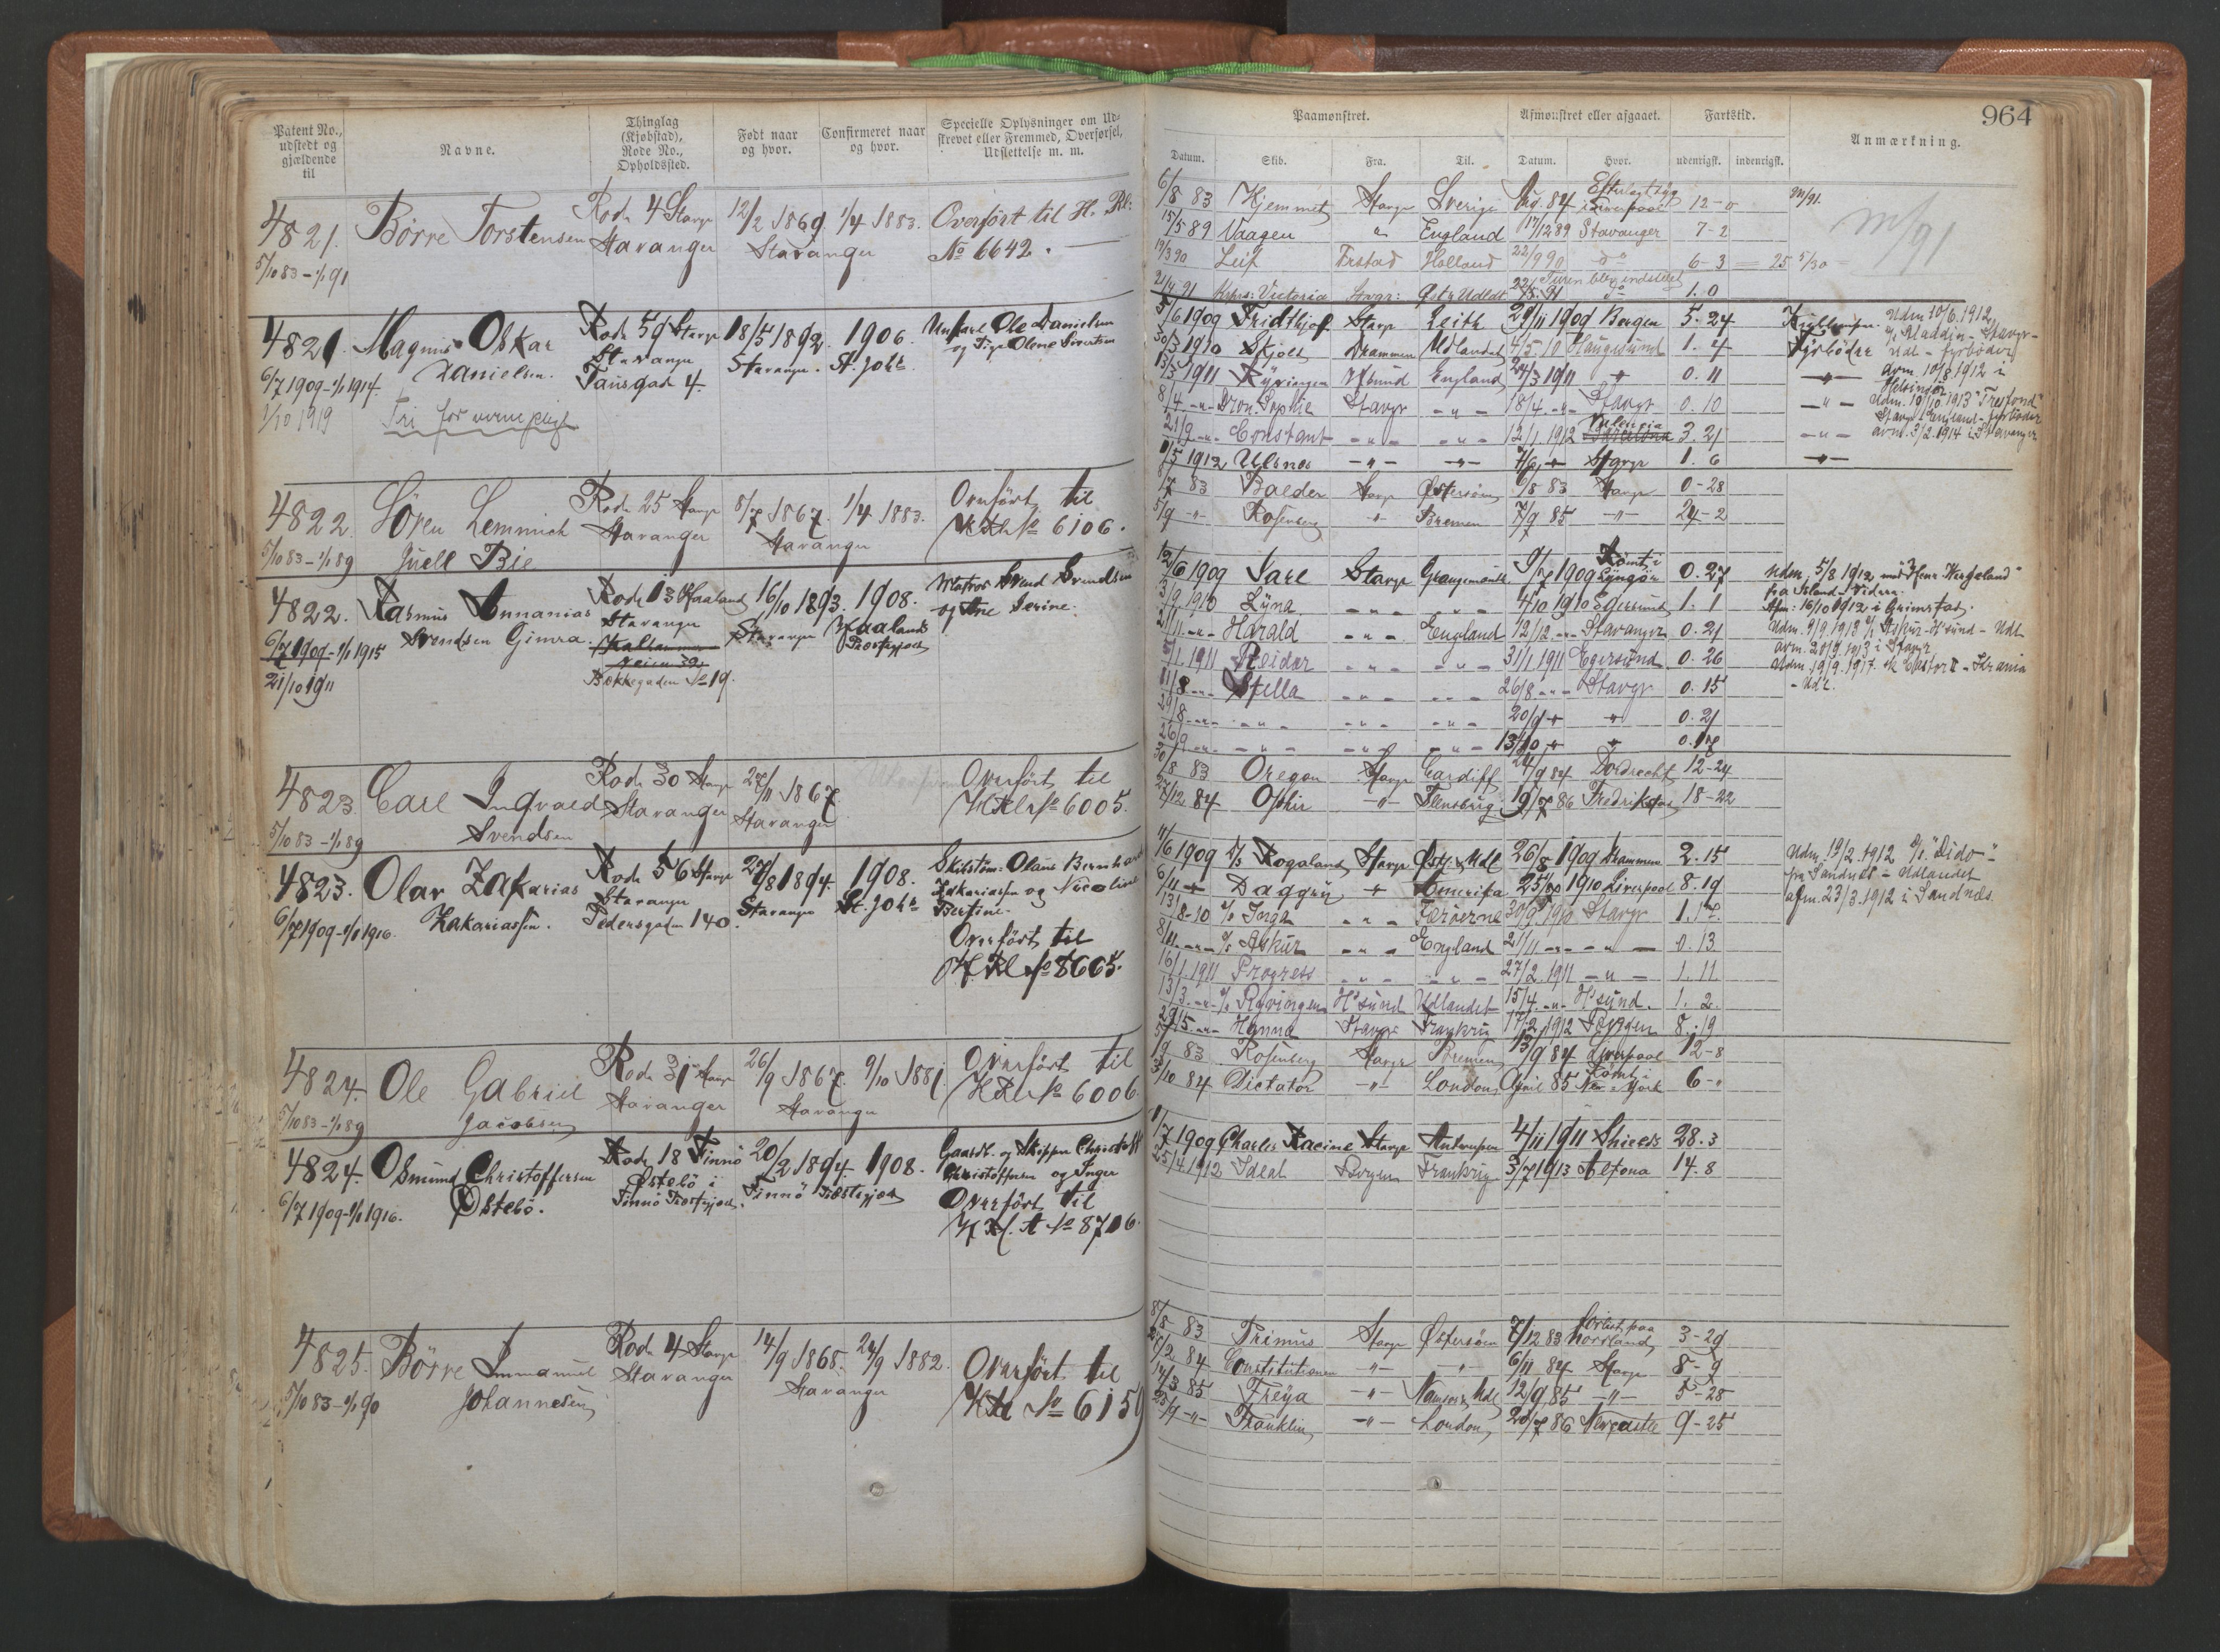 Patent No.,
udstedt og
gjældende
til
Navne.
Thinglag
(Kjøbstad),
Rode No.,
Opholdssted.
Født naar
og hvor.
Confirmeret naar
og hvor.
Specielle Oplysninger om Ud-
skrevet eller Fremmed, Overførsel,
Udslettelse m. m.
4821. Børre Torstensen Rode 4 Stavgr 12/2 1869. 1/4 1883. Overført til H. Rl:
Stavanger Stavanger No 6642.
5/10 83 – 1/1 91
4821. Magnus Oskar Rode 59 Stavgr 18/5 1892. 1906. Ole Danielsen
Danielsen. Stavanger Stavanger. St. Johs.
6/7 1909 – 1/1 1914. Tausgade 4.
1/10 1919 Fri for vernepligt
4822. Sören Lemmich Rode 25 Stavgr 8/7 1867. 1/4 1883. Overført til
Stavanger Stavanger No 6106.
5/10 83 – 1/1 89 Juell Bie
4822. Rasmus Annanias Rode 13 Haaland 16/10 1893. 1908. Matros Svend Svendsen
Svendsen Gimra. Stavanger Stavanger Haalands og Ane Serine.
6/7 1909 – 1/1 1915 Præstegjæld
21/10 1911 Bakkegaden No 19.
4823. Carl Ingvald Rode 30 Stavgr 27/11 1867 Overført til
Stavanger Stavanger No 6005.
5/10 83 – 1/1 89 Svendsen
4823. Olav Zakarias Rode 56 Stavgr 27/8 1894. 1908. Olaus Bernhard
Zakariassen. Stavanger Stavanger St. Johs Zakariassen og Nicoline
6/7 1909 – 1/1 1916. Pedersgaden 140. Bertine.
Overført til
H. Rl No 8605.
4824. Ole Gabriel Rode 31 Stavgr 26/9 1867. 9/10 1881. Overført til
Stavanger Stavanger No 6006.
5/10 83 – 1/1 89 Jacobsen
4824. Osmund Christoffersen Rode 18 Finnö 20/2 1894. 1908. Gaardb. og Skipper
Østebö. Østebö i Finnö Præstegjæld Christoffersen og Inger
6/7 1909 – 1/1 1916. Finnö Præstegjæld. Overført til
H Rl. A No 8706.
4825. Børre Immanuel Rode 4 Stavgr 14/9 1868. 24/9 1882. Overført til
Stavanger Stavanger No 6159
5/10 83 – 1/1 90 Johannesen
964
Paamønstret. Afmønstret eller afgaaet. Fartstid.
Anmærkning.
Datum. Skib. Fra. Til. Datum. Hvor. udenrigsk. indenrigsk.
6/8 83 Hjemmet Stavgr Sverige Aug. 84 12 – 0
15/5 89 Vaagen " England 17/12 89 Stavanger 7 – 2
19/3 90 Leif Holland 22/9 90 do 6 – 3
21/4 91 Victoria Stavgr: Turen blev indstillet 1. 0
m/91
5/6 1909 Fridthjof Stavgr Leith 29/11 1909 Bergen 5. 24
30/3 1910 Skjold Drammen Udlandet 4/5 10 Haugesund 1. 4 Fyrbøder
13/3 1911 Ryvingen Hsund England 24/3 1911 0. 11
8/4 Dron. Sophie Stavgr 18/4 Stavgr 0. 10
21/9 Constant 12/1 1912 Valencia 3. 21
1/5 1912 Ulsnes 7/6 Stavgr 1. 6
Udm 10/6. 1912
Aladdin – Stavgr –
Udl – fyrbøder
avm 10/8 1912 i
Helsingör
Stavgr England – fyrbøder
avm. 3/2 1914 i Stavanger
6/7 83 Balder Stavgr Østersøen 6/8 83 Stavgr 0 – 28
5/9 Rosenberg Bremen 7/9 85 24 – 2
12/6 1909 Jarl Stavgr Grangemouth 9/7 1909 Lyngör 0. 27
3/9 1910 Lyna 4/10 1910 Egersund 1. 1
21/11 Harald England 12/12 Stavanger 0. 21
5/1. 1911 Reidar 31/1 1911 Egersund 0. 26
11/8 Stella 26/8 Stavgr 0. 15
29/8 20/9 0. 21
26/9 13/10 0. 17
Udm. 5/8 1912
fra Island –
Afm: 16/10 1912 i Grimstad.
Udm. 9/9. 1913 Askur – Hsund – Udl
avm. 20/9. 1913 i Stavgr
Udm. 19/9. 1917.
– Udl.
30/8 83 Oregon Stavgr Cardiff 24/9 84 Dordrecht 12 – 24
27/12 84 Ophir Flensburg 19/7 86 Fredrikstad 18 – 22
11/6 1909 D/s Rogaland Stavgr Øst & Udl 26/8 1909 Drammen 2. 15
6/11 Daggry Amerika 25/7 1910 Liverpool 8. 19
13/8 – 10 Inga Færøerne 30/9 1910 Stavgr 1. 17
8/11 Askur England 21/11 0. 13
16/1. 1911 Progress 27/2. 1911 1. 11
13/3 Ryvingen Hsund Udlandet 15/4 Hsund. 1. 2.
29/5 Hanna Stavgr Frankrig 17/2 1912 8. 19
Udm. 19/2. 1912 D/s "Dido" –
fra Sandnes – Udlandet
afm. 23/3. 1912 i Sandnes
1/9 83 Rosenberg Stavgr Bremen 13/9 84 Liverpool 12 – 8
3/10 84 Dictator London April 85 Rømt i New-York 6 –
1/7 1909 Charles Racine Stavgr Antwerpen 4/11 1911 Shields 28. 3
25/4 1912 Ideal Bergen Frankrig 3/7 1913 Altona 14. 8
8/8 83 Primus Stavgr Østersøen 7/12 83 forlist paa Norrland 3 – 29
26/2 84 Constitutionen 6/11 84 Stavgr 8 – 9
14/3 85 Freya 12/9 85 5 – 28
25/9 Franklin London 20/7 86 Newcastle 9 – 25